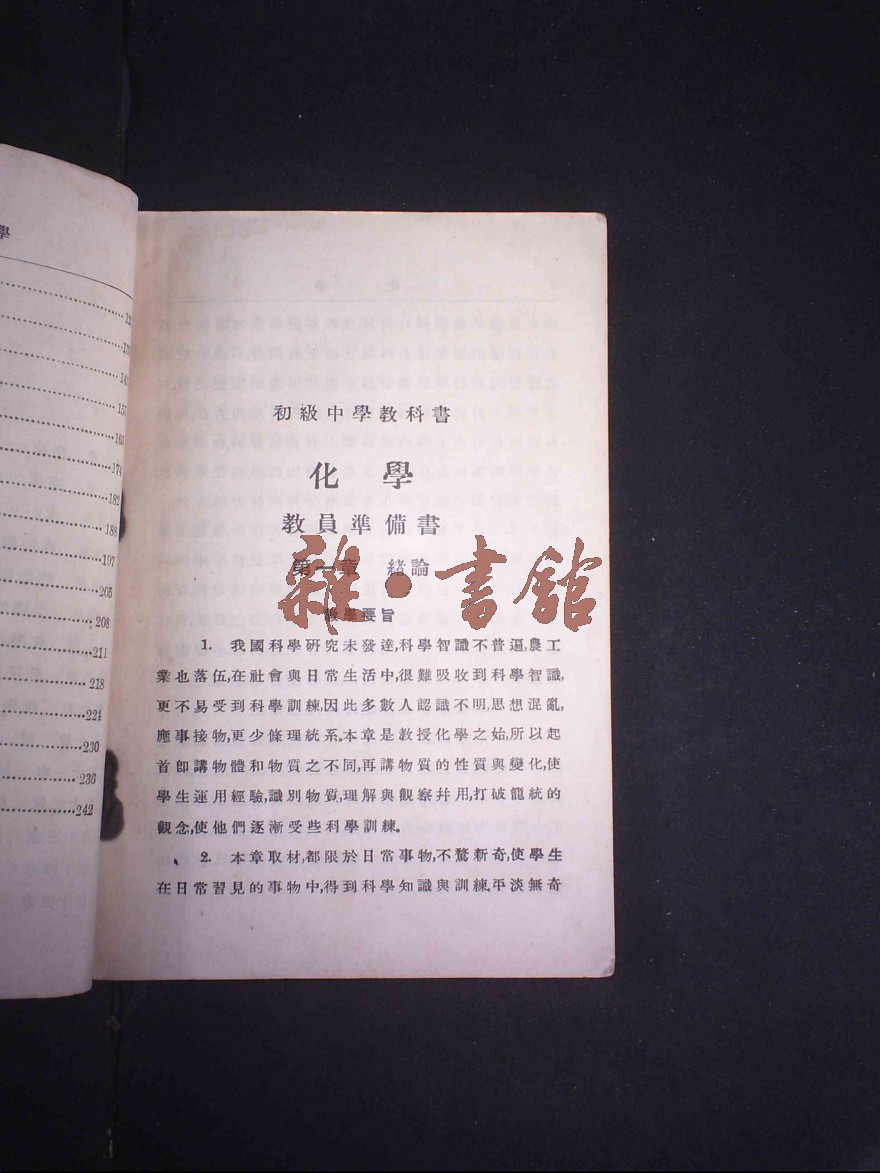 學
12
13
14
155
165
174
182
188
197
205
208
211
218
224
230
236
242
初級中學教科書
化學
教員準備書
第一章 緒論
教學要旨
雜·書館
1. 我國科學研究未發達,科學智識不普遍,農工
業也落伍,在社會與日常生活中,很難吸收到科學智識,
更不易受到科學訓練,因此多數人認識不明,思想混亂,
應事接物,更少條理統系.本章是教授化學之始,所以起
首卽講物體和物質之不同,再講物質的性質與變化,使
學生運用經驗,識別物質,理解與觀察幷用,打破籠統的
觀念,使他們逐漸受些科學訓練.
2. 本章取材,都限於日常事物,不鶩新奇,使學生
在日常習見的事物中,得到科學知識與訓練.平淡無奇